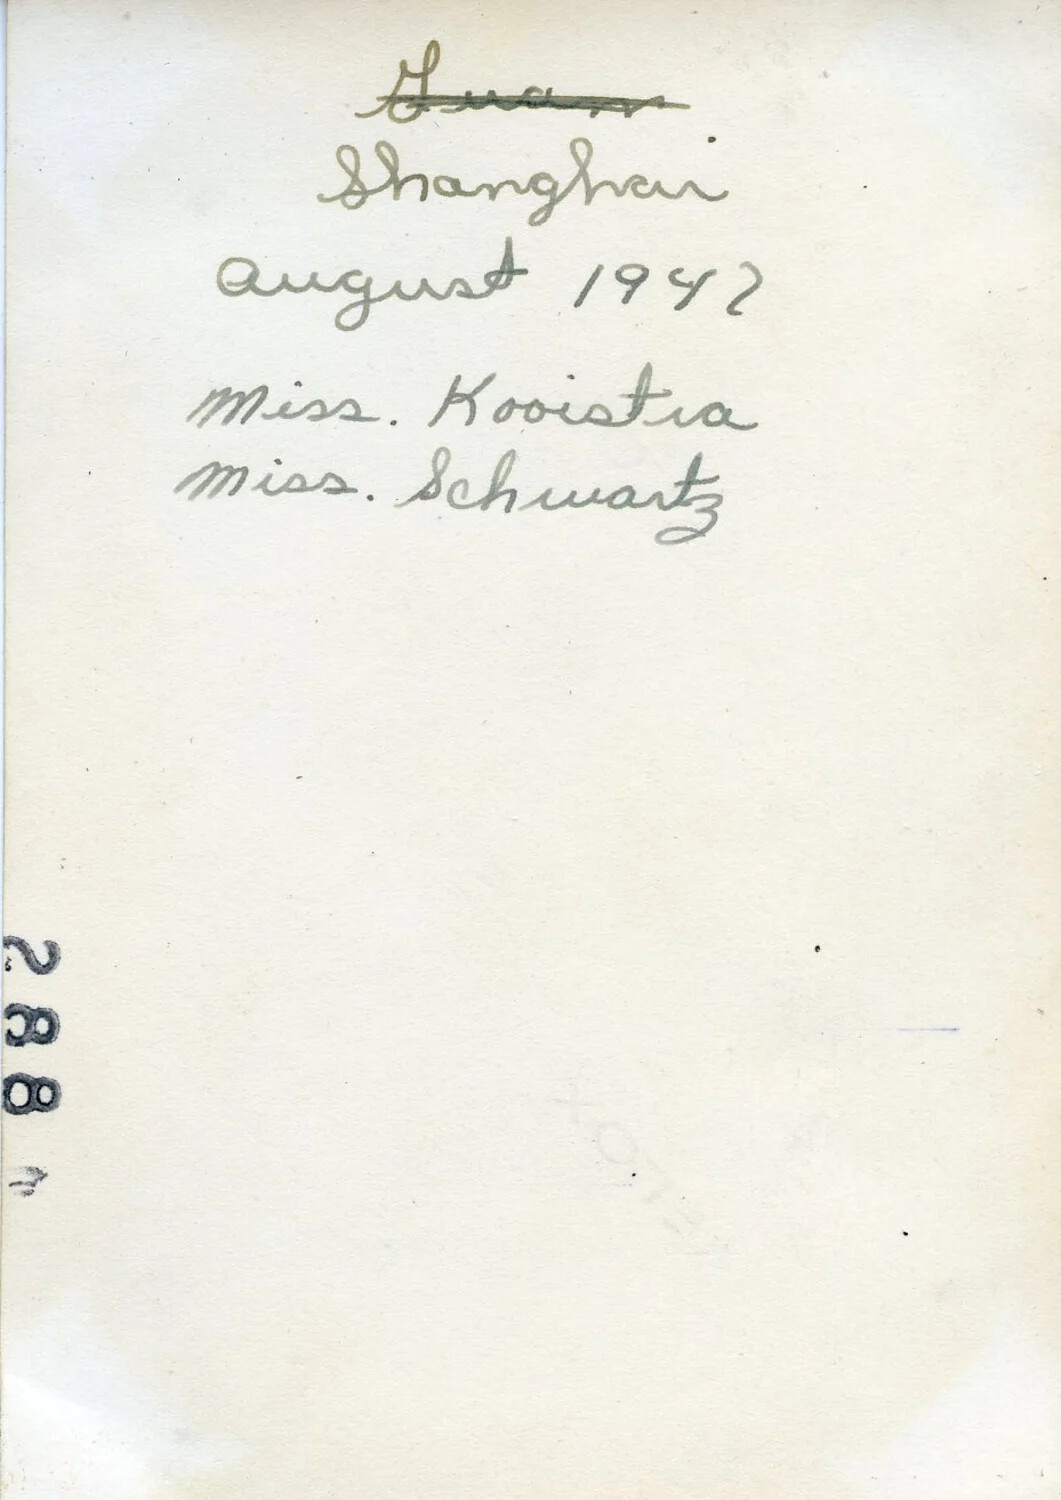 Guam
Shanghai
August 1947
Miss. Kooistra
Miss. Schwartz
288